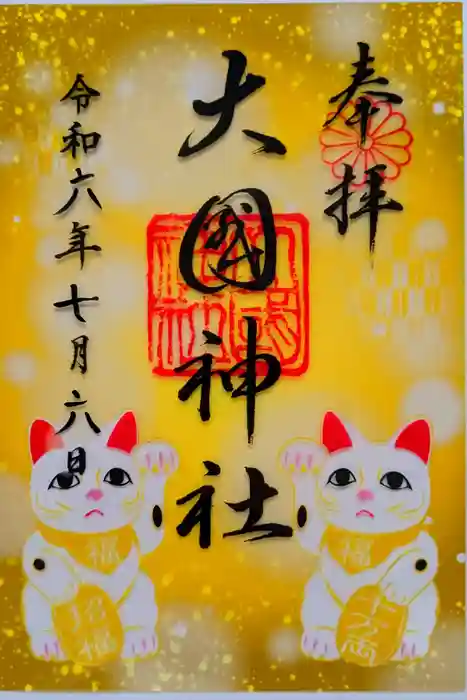 奉拝
大國神社
令和六年七月六日
福
招福
福
千万両